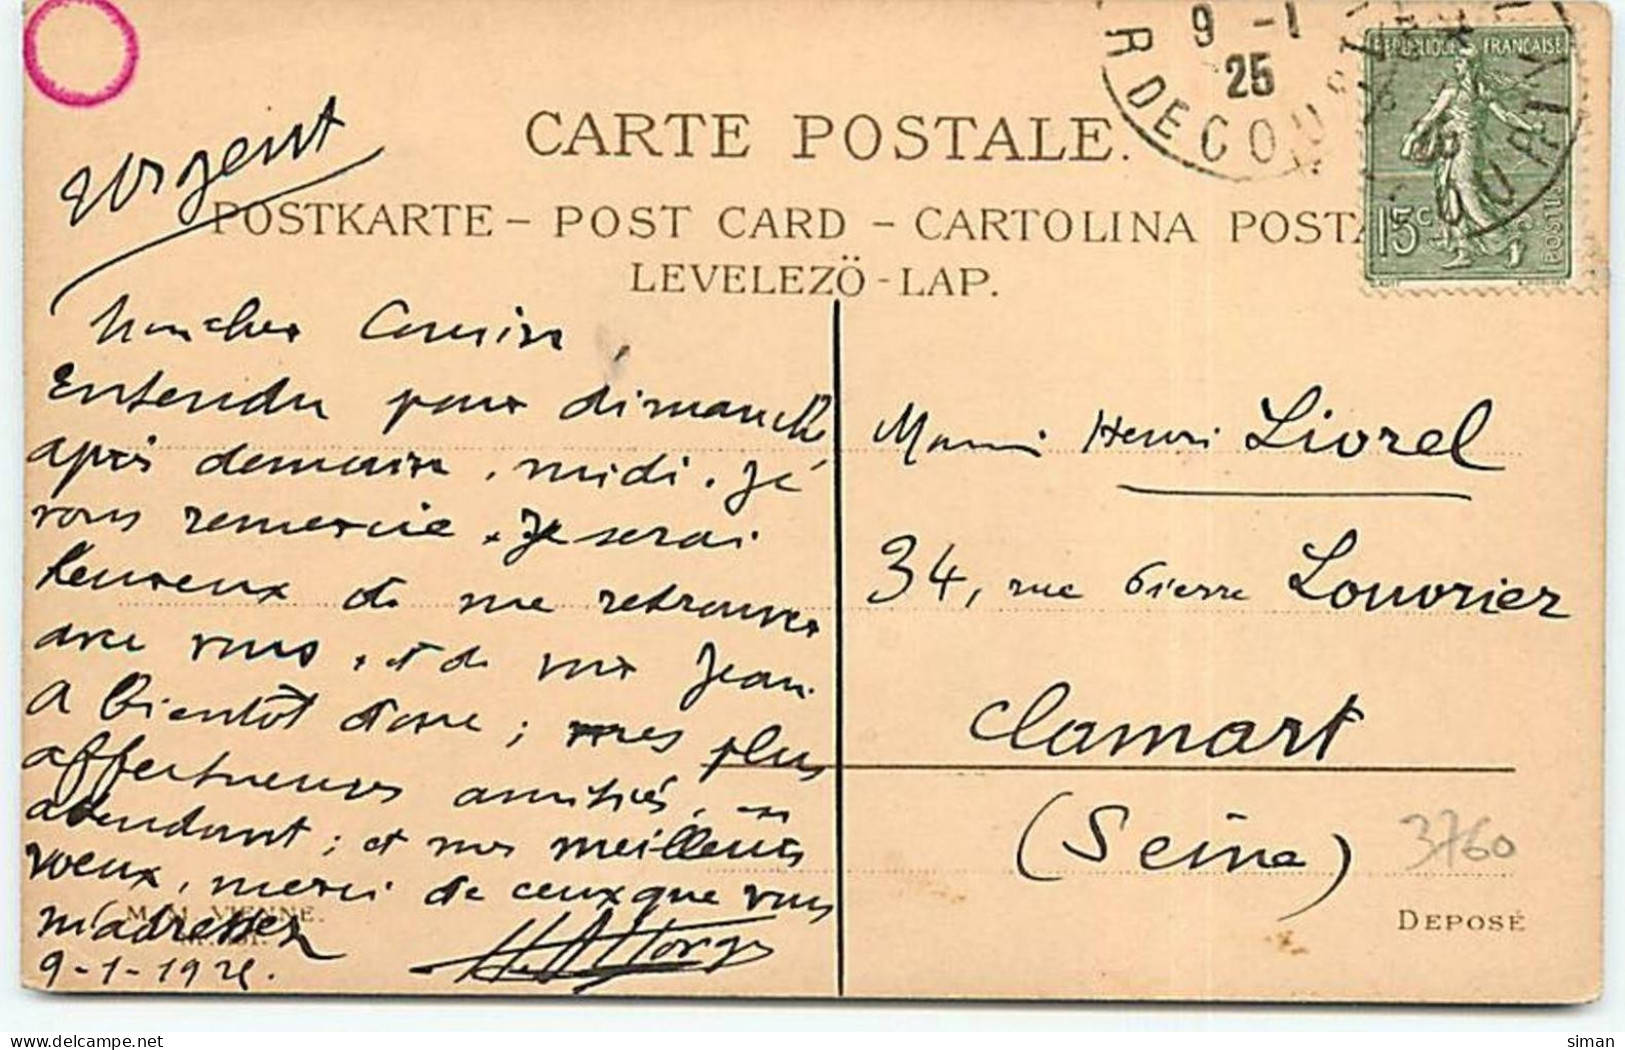 9 -1
25
R DE COU
REPUBLIQUE FRANCAISE
15c
POSTES
Urgent
CARTE POSTALE.
POSTKARTE – POST CARD – CARTOLINA POSTA
LEVELEZÖ - LAP.
Mon cher Cousin,
Entendu pour dimanche
après demain, midi. Je
vous remercie. Je serai
heureux de me retrouver
avec vous, et de voir Jean.
A bientôt donc ; mes plus
affectueuses amitiés, en
attendant ; et mes meilleurs
voeux, merci de ceux que vous
m'adressez
9-1-1925.
M. M. VIENNE.
Henri Livrel
34, rue Pierre Louvrier
Clamart
(Seine)
3760
DEPOSÉ
siman